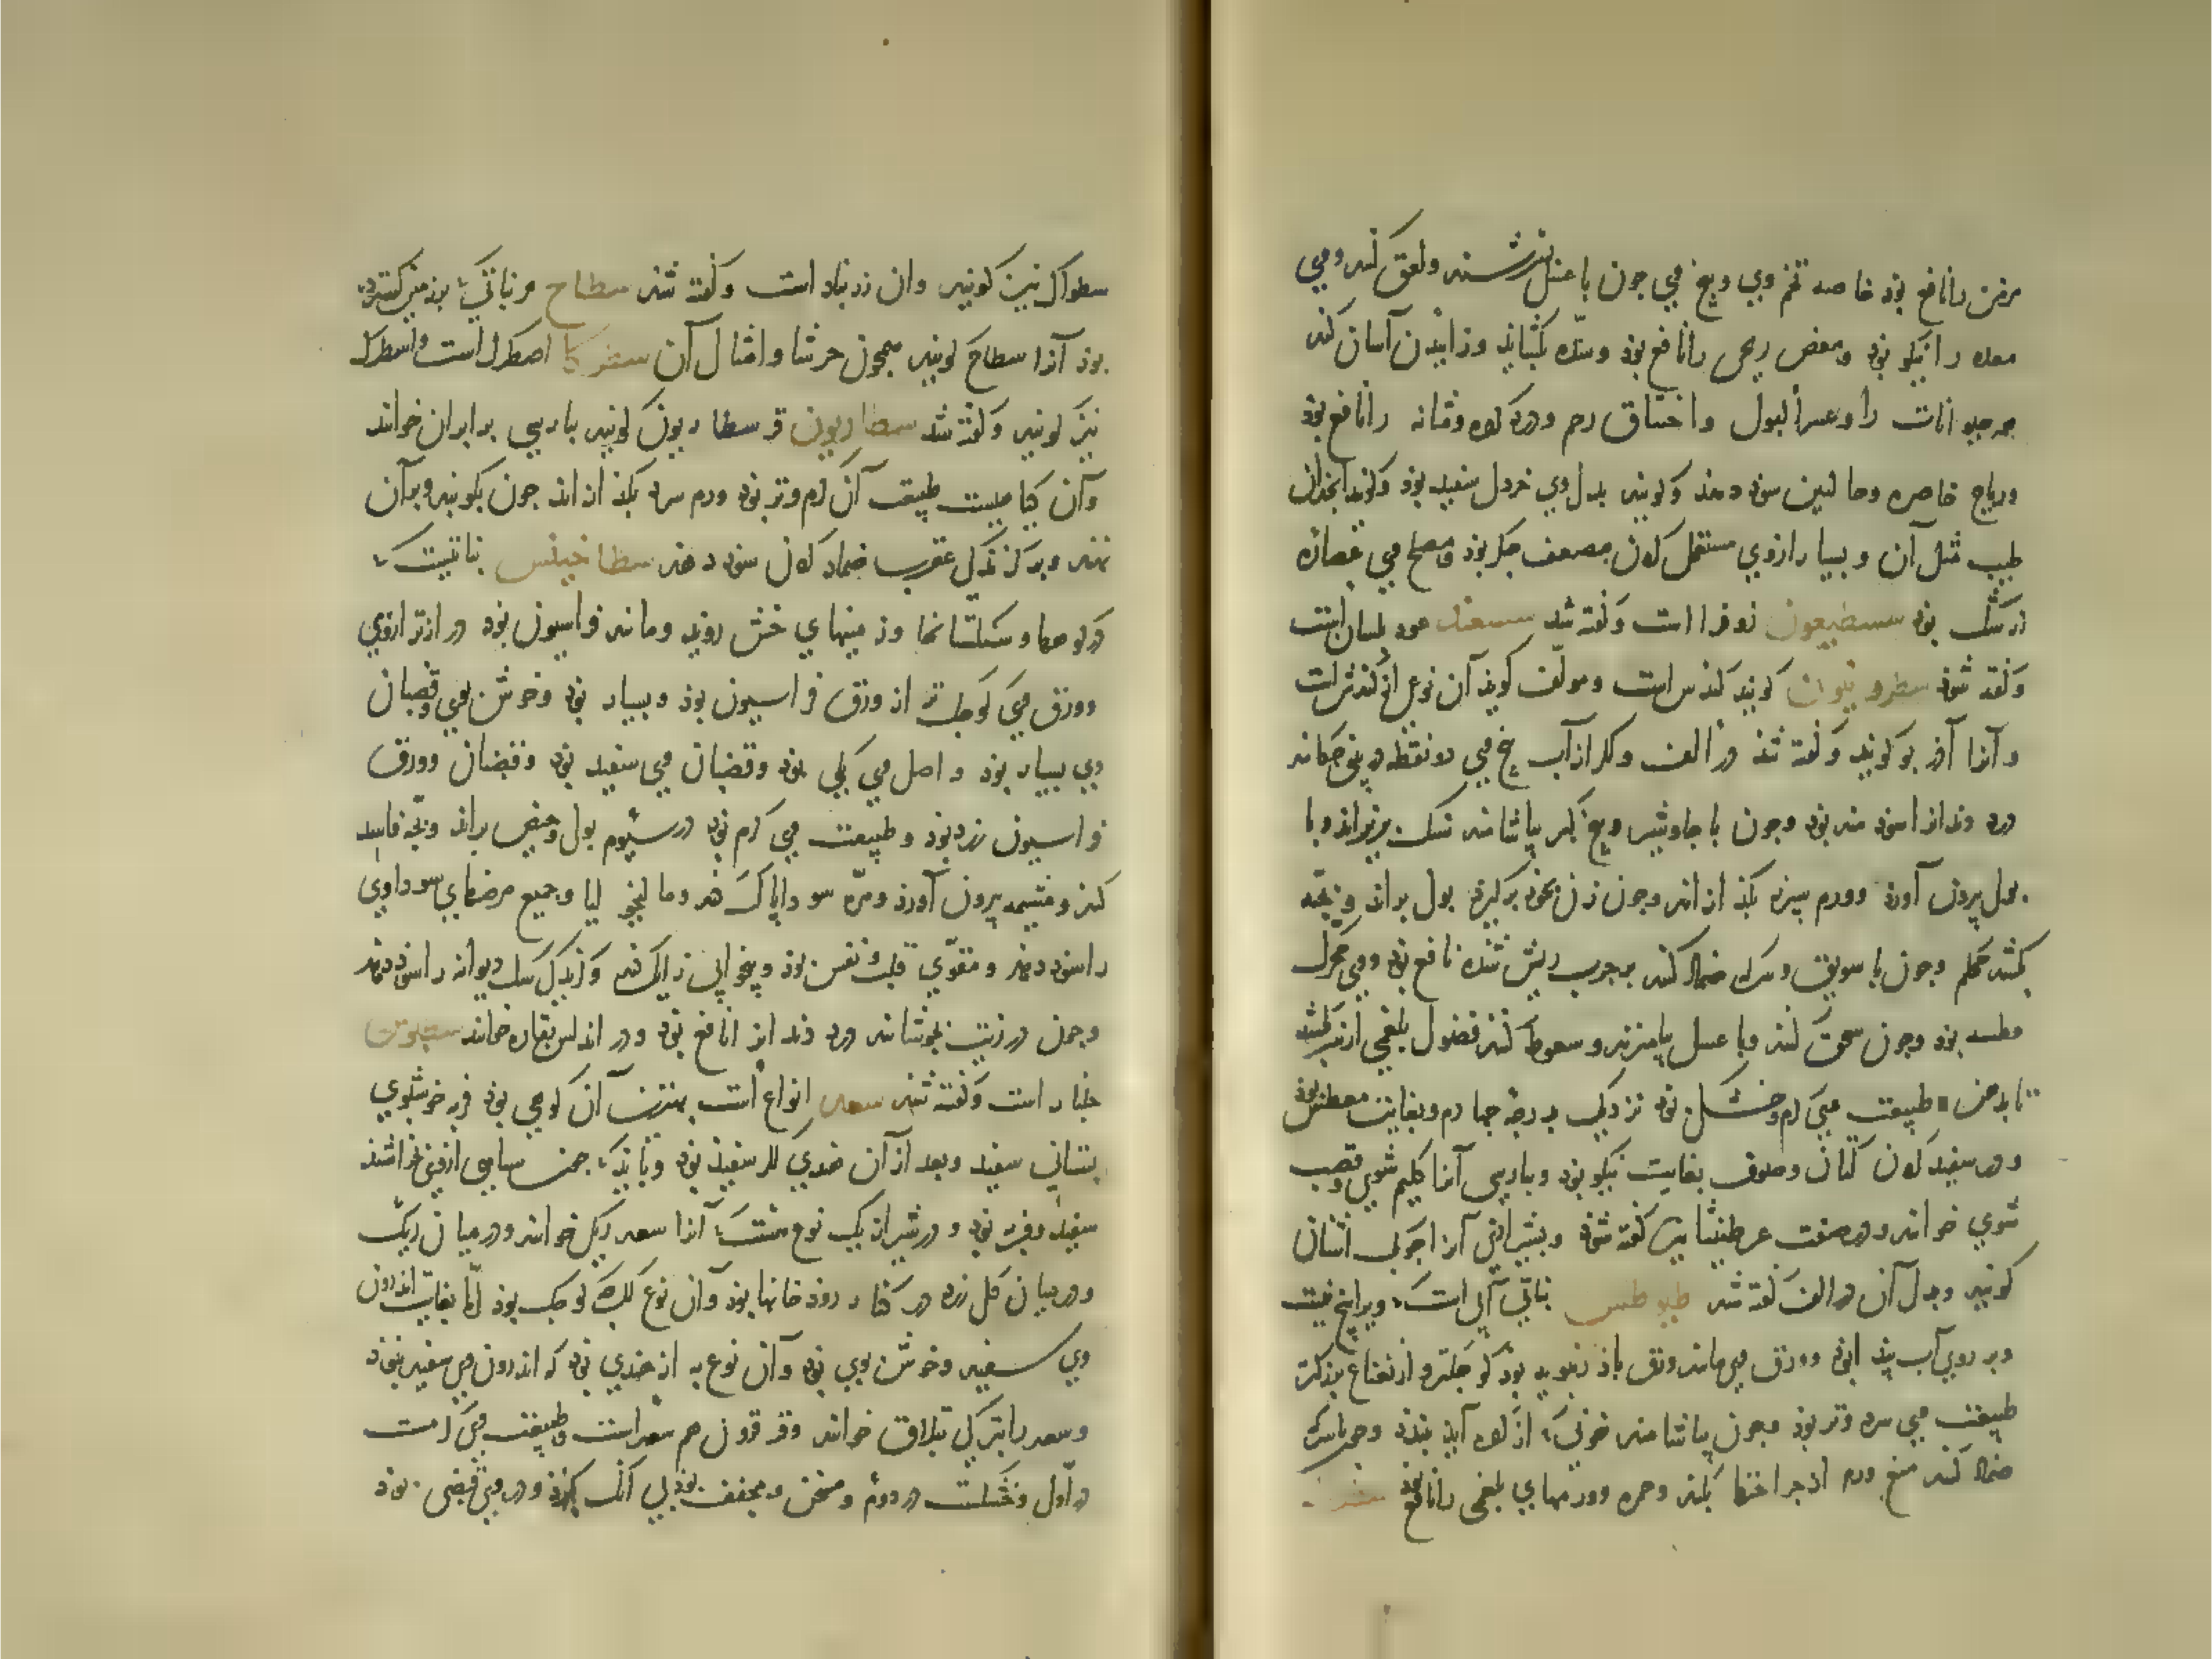 مزمن را نافع بود خاصه تخم وی و بیخ وی چون با عسل بسرشند و لعق کنند و وی
معده را نیکو بود و مغص ریحی را نافع بود و سده بکشاید و زاییدن آسان کند
همه حیوانات را و عسر البول و اختناق رحم و درد کرده و مثانه را نافع بود
و ریاح خاصره و حالبین سود دهد و کویند بدل وی خردل سفید بود و کویند انجدان
طیب مثل آن و بسیار ازوی مستعمل کردن مضعف جکر بود و مصلح وی عصاره
زرشک بود سسطیعون نوفرا است و کفته شد سسعند عود بلسان است
و کفته شود سطرونیون کویند کندس است و مولف کوید آن نوعی از کندش است
و آنرا آذربو کویند و کفته شد در الف و کر از آب بیخ وی دو نقطه در بینی چکانند
درد دندانرا سود مند بود و چون با جاوشیر و بیخ کبر بیاشامند سنک بریزاند و با
بول بیرون آورد و ورم سپرز بکدازاند و چون زن بخود برکیرد بول براند و بچه
بکشد محکم و چون با سویق و سرکه ضماد کنند بر جرب ریش شده نافع بود و وی محرک
عطسه بود و چون سحق کنند و با عسل بیامیزند و سعوط کنند فضول بلغمی از سر بکشد
تا بدهن طبیعت وی کرم و خشک بود نزدیک بدرجه چهارم و بغایت معطس بود
و در سفید کردن کتان و صوف بغایت نیکو بود و بپارسی آنرا کلیم شوی و قصب
شوی خوانند و در صفت عرطنیثا نیز کفته شود و بشیرازی آنرا چوبک اشنان
کویند و بدل آن در الف کفته شد طیوطس نباتی آبی است و ویرا بیخ نیست
و بر روی آب پیدا بود و ورق وی مانند ورق بادرنبویه بود کوچکتر و از نعناع بزرکتر
طبیعت وی سرد و تر بود و چون بیاشامند خونی که از کرده آید ببندد و چون با سرکه
ضماد کنند منع ورم از جراحتها بکند و حمره و ورمهای بلغمی را نافع بود
سطوراک نیز کویند و آن زرنباد است و کفته شد سطاح هر نباتی که بر زمین کسترده
بود آنرا سطاح کویند همچون حرشا و امثال آن سطرکا اصطرک است و اسطرک
نیز کویند و کفته شد سطاریون قرسطاریون کویند بپارسی برابران خوانند
و آن کیاهیست طبیعت آن کرم و تر بود ورم سرد بکدازاند چون بکوبند و بر آن
نهند و بر کزندکی عقرب ضماد کردن سود دهد سطاخینس نباتیست که
در کوهها و سنکستانها و زمینهای خشن روید و مانند فراسیون بود درازتر ازوی
و ورق وی کوچکتر از ورق فراسیون بود و بسیار بود و خوش بوی و قضبان
وی بسیار بود و اصل وی یکی بود و قضبان وی سفید بود و قضبان و ورق
فراسیون زرد بود و طبیعت وی کرم بود در سیوم بول و حیض براند و بچه فاسد
کند و مشیمه بیرون آورد و مره سودا پاک کند و مالیخولیا و جمیع مرضهای سوداوی
را سود دهد و مقوی قلب و نفس بود و بیخوابی زایل کند و کزندکی سک دیوانه را سود دهد
و چون در زیت بجوشانند درد دندانرا نافع بود و در اندلس بقاره خوانند
خیار است و کفته شد سعد انواع است بهترین آن کوفی بود فربه خوشبوی
بستانی سفید و بعد از آن هندی که سفید بود و نباید که چون سیاهی ازوی بخراشند
سفید و فربه بود و در شیراز یک نوع هست که آنرا سعد ریکی خوانند و در میان ریک
و در میان کل زرد در کنار رودخانها بود و آن نوع اکرچه کوچک بود اما بغایت اندرون
وی سفید و خوش بوی بود و آن نوع به از هندی بود که اندرون وی سفید نبود
و سعد را بترکی تبلاق خوانند و قرقرون هم سعد است و طبیعت وی کرم است
در اول و خشکست در دویم و مسخن و مجفف بود بی آنک بکزد و در وی قبضی بود